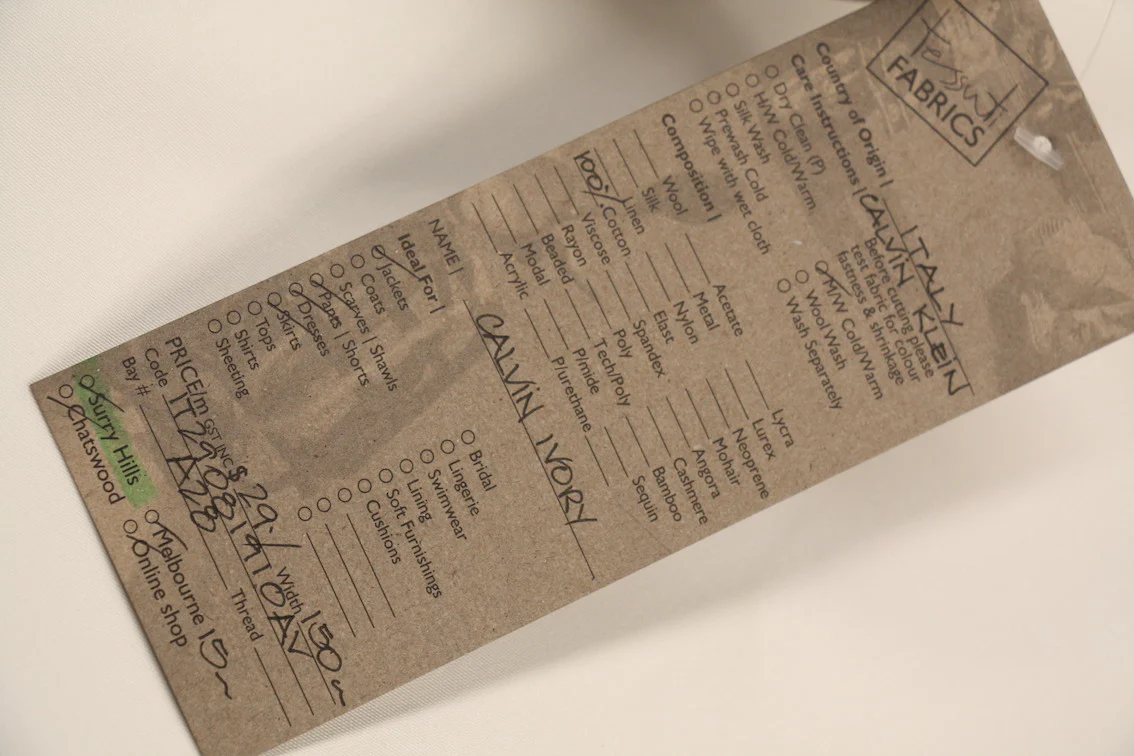 Tessuti
FABRICS
Country of Origin | ITALY
Care Instructions | CALVIN KLEIN
Dry Clean (P)
H/W Cold/Warm
Silk Wash
Prewash Cold
Wipe with wet cloth
Before cutting please
test fabric for colour
fastness & shrinkage
M/W Cold/Warm
Wool Wash
Wash Separately
Composition |
Wool
Silk
Linen
100% Cotton
Viscose
Rayon
Beaded
Modal
Acrylic
Acetate
Metal
Nylon
Elast
Spandex
Poly
Tech/Poly
P/mide
P/urethane
Lycra
Lurex
Neoprene
Mohair
Angora
Cashmere
Bamboo
Sequin
NAME | CALVIN IVORY
Ideal For |
Jackets
Coats
Scarves | Shawls
Pants | Shorts
Dresses
Skirts
Tops
Shirts
Sheeting
Bridal
Lingerie
Swimwear
Lining
Soft Furnishings
Cushions
PRICE/m GST INC $29.- Width 150m
Code IT290819TOAV
Bay # A28 Thread
Surry Hills
Chatswood
Melbourne 15m
Online shop